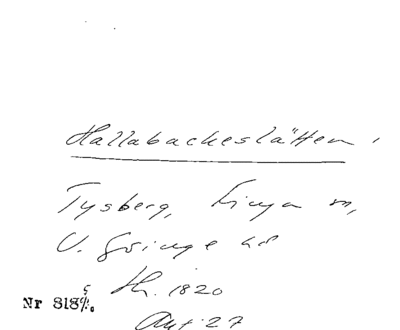 Hallabackeslätten
Tysberg, Linga m,
V. Göinge hd
Nr 818
1820
Akt 27